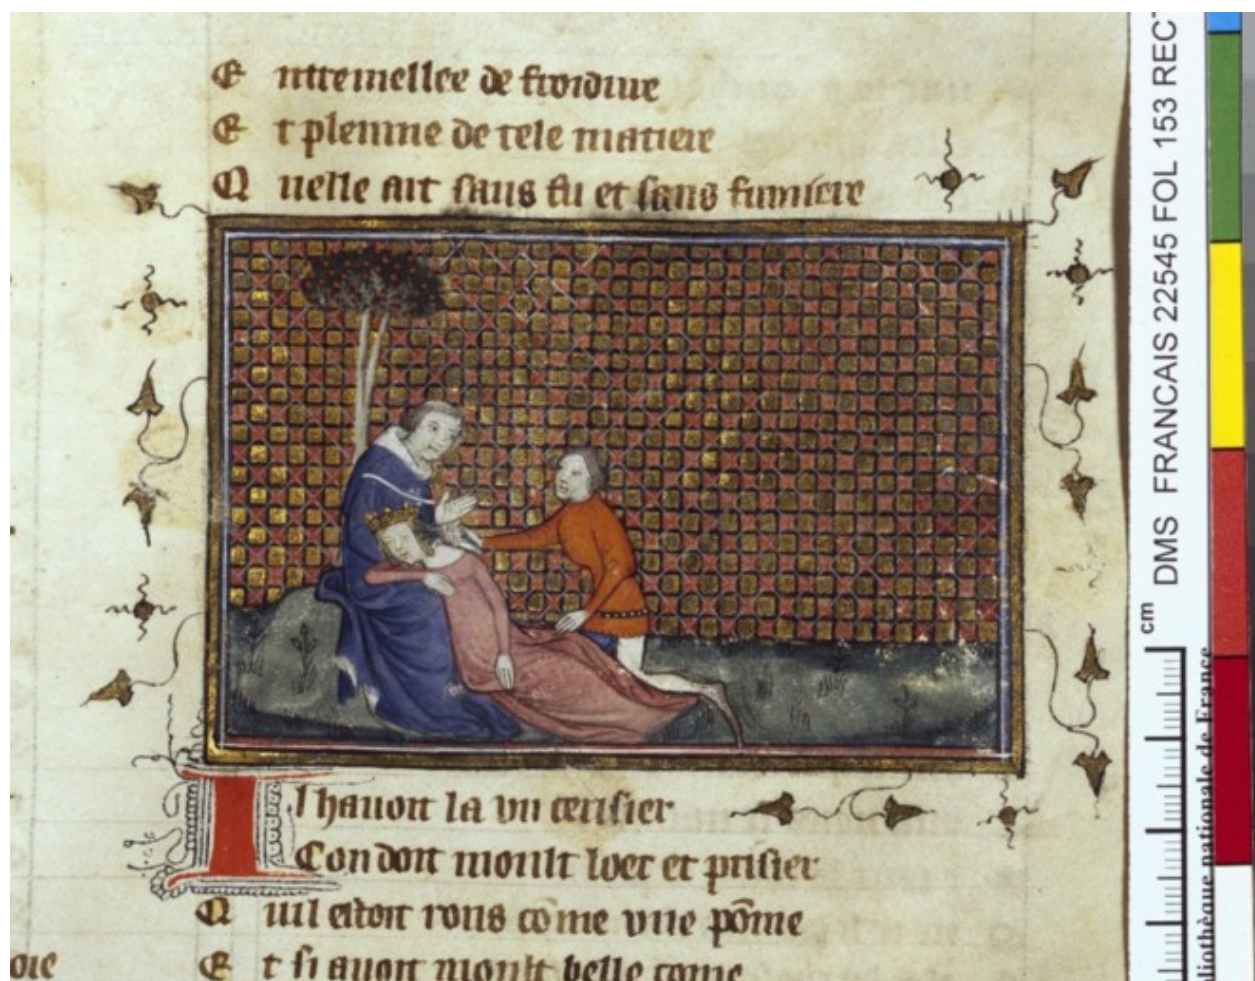 E ntremellee de froidure
E t pleinne de tele matiere
Q uelle art sans fu et sans fumiere
I l hauoit la vn cerisier
Con doit moult loer et prisier
Q uil estoit rons cōme vne pōme
oie
E t si auoit moult belle come
DMS FRANCAIS 22545 FOL 153 RECT
cm
bliothèque nationale de France